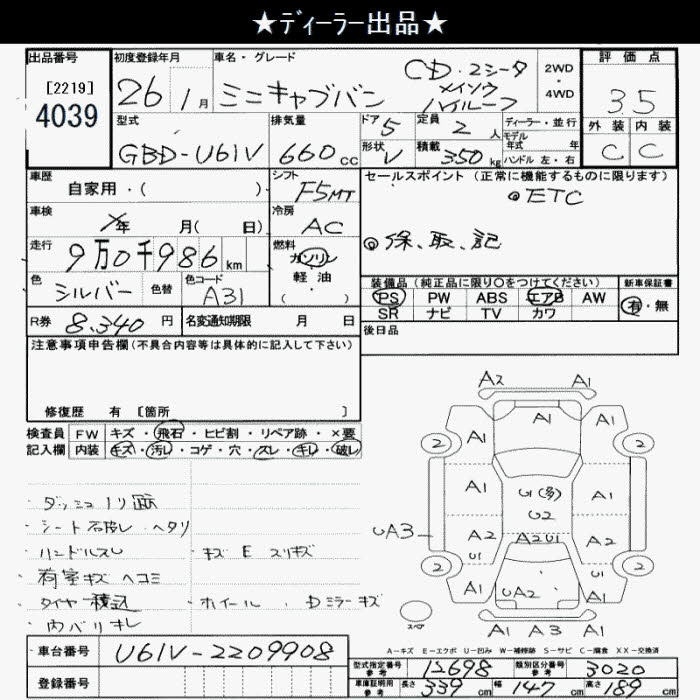 ★ディーラー出品★
出品番号
[2219]
4039
初度登録年月
26 1月
車名・グレード
ミニキャブバン
CD・2シータ
ハイルーフ
2WD
・
4WD
評価点
3.5
外装 内装
C C
型式
GBD-U61V
排気量
660cc
ドア 5
形状 V
定員 2人
積載 350kg
ディーラー・並行
モデル
年式 年
ハンドル 左・右
車歴
自家用・( )
シフト
F5MT
セールスポイント (正常に機能するものに限ります)
◎ETC
◎保、取、記
車検
年 月( 日)
冷房
AC
走行
9万0千986km
燃料
ガソリン
軽・油
( )
色
シルバー
色替
色コード
A31
装備品(純正品に限り○をつけてください)
PS PW ABS エアB AW
SR ナビ TV カワ
新車保証書
有・無
R券 8,340円
名変通知期限 月 日
後日品
注意事項申告欄(不具合内容等は具体的に記入して下さい)
修復歴 有 [箇所 ]
検査員
記入欄
FW キズ・飛石・ヒビ割・リペア跡・×要
内装 キズ・汚レ・コゲ・穴・スレ・キレ・破レ
・シート ヘタリ
・ハンドルスレ ・キズ E スリキズ
・荷室キズ ヘコミ
・タイヤ積込 ・ホイール、Dミラーキズ
・内バリキレ
A2 A1
A1
2 A1 A1 2
A1 U1(多) A1
U2
UA3 A2 A2U1 A2
U1 U1
2 A1 UA2 A1 2
スペア
A1 A3 A1
A-キズ E-エクボ U-凹み W-補修跡 S-サビ C-腐食 XX-交換済
車台番号 U61V-2209908
登録番号
型式指定番号
参考
12698
類別区分番号
参考
3020
車庫証明用
参考
長さ 339cm 幅 147cm 高さ 189cm